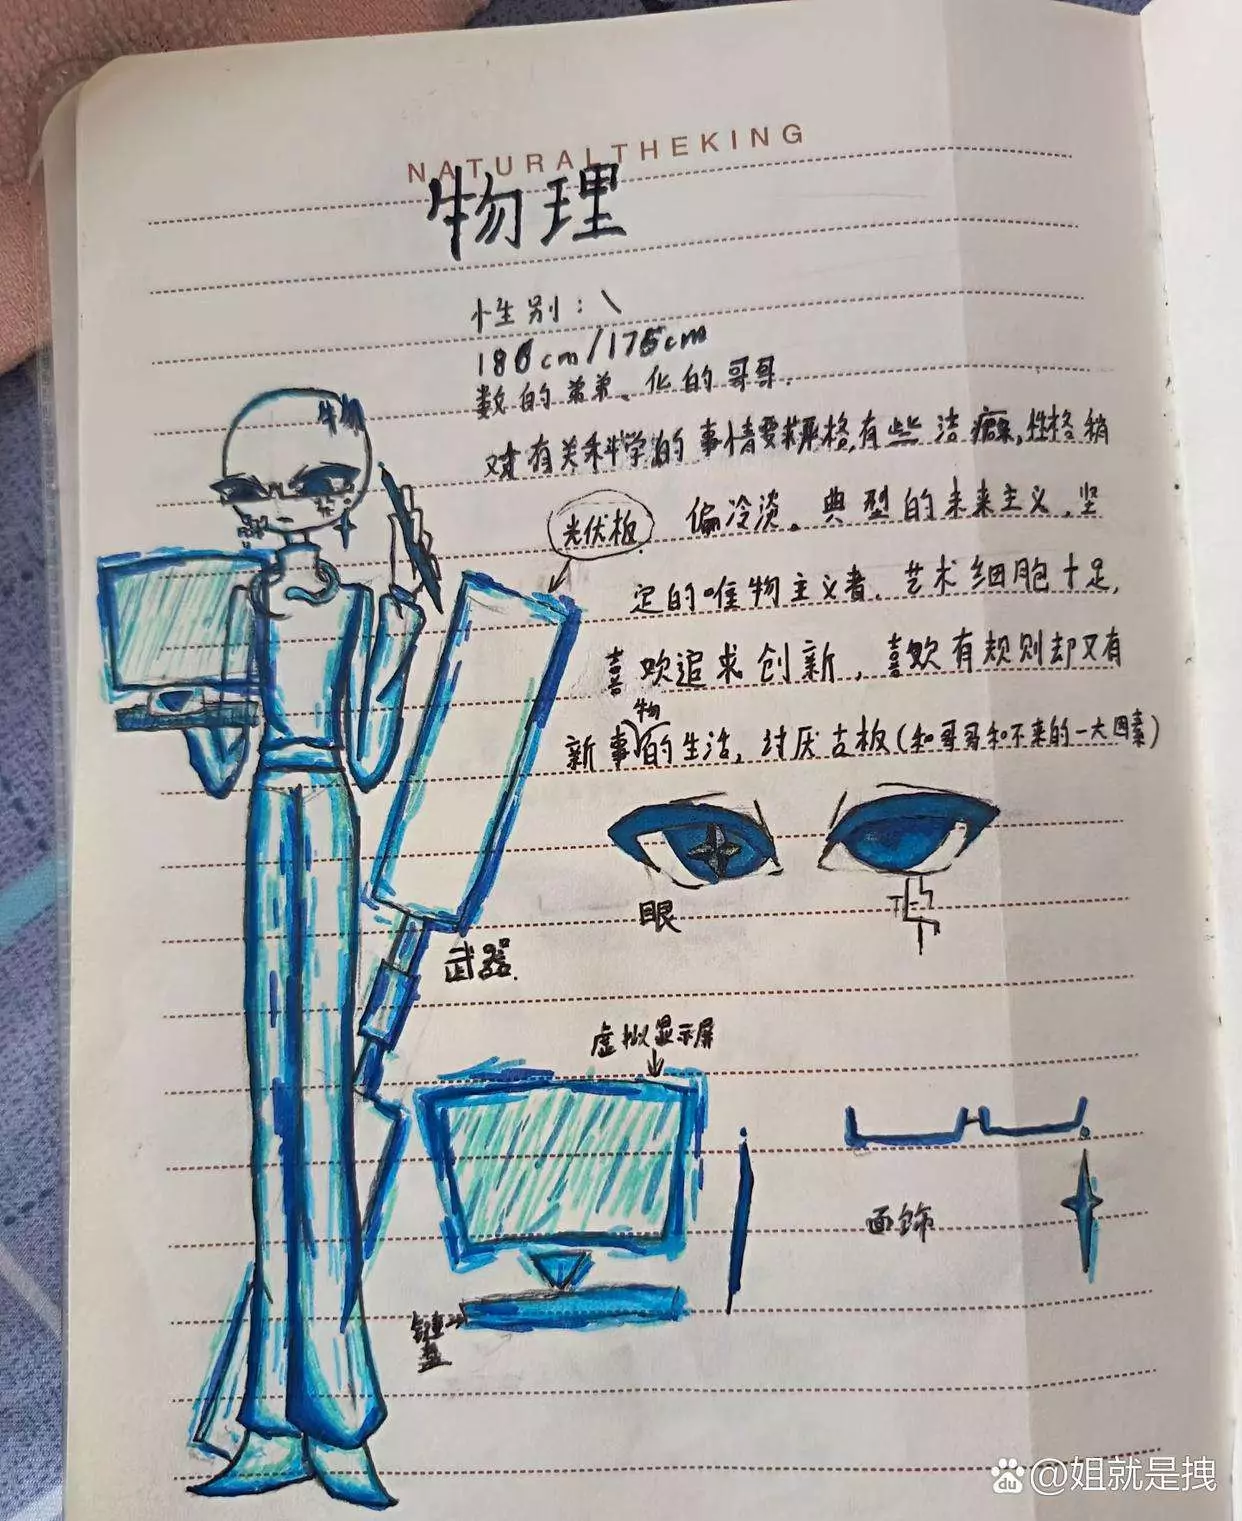 NATURALTHEKING
物理
性别：\
186cm/175cm
数的弟弟、化的哥哥.
对有关科学的事情要求严格,有些洁癖,性格稍
光伏板
偏冷淡。典型的未来主义,坚
定的唯物主义者。艺术细胞十足,
喜欢追求创新，喜欢有规则却又有
新事(物)的生活，讨厌古板(和哥哥和不来的一大因素)
眼
武器.
虚拟显示屏
面饰
键盘
@姐就是拽